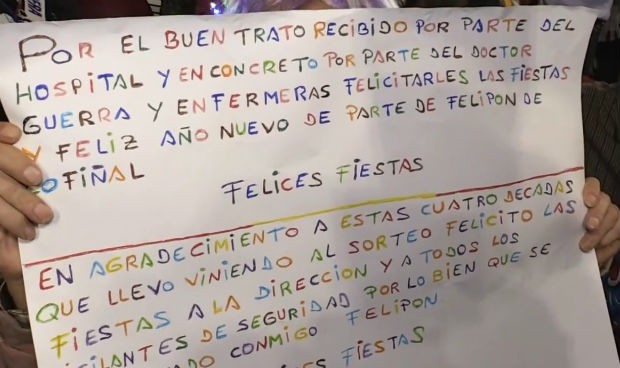 POR EL BUEN TRATO RECIBIDO POR PARTE DEL
HOSPITAL Y EN CONCRETO POR PARTE DEL DOCTOR
GUERRA Y ENFERMERAS FELICITARLES LAS FIESTAS
Y FELIZ AÑO NUEVO DE PARTE DE FELIPON DE
COFIÑAL
FELICES FIESTAS
EN AGRADECIMIENTO A ESTAS CUATRO DECADAS
QUE LLEVO VINIENDO AL SORTEO FELICITO LAS
FIESTAS A LA DIRECCION Y A TODOS LOS
VIGILANTES DE SEGURIDAD POR LO BIEN QUE SE
CONMIGO FELIPON
FIESTAS